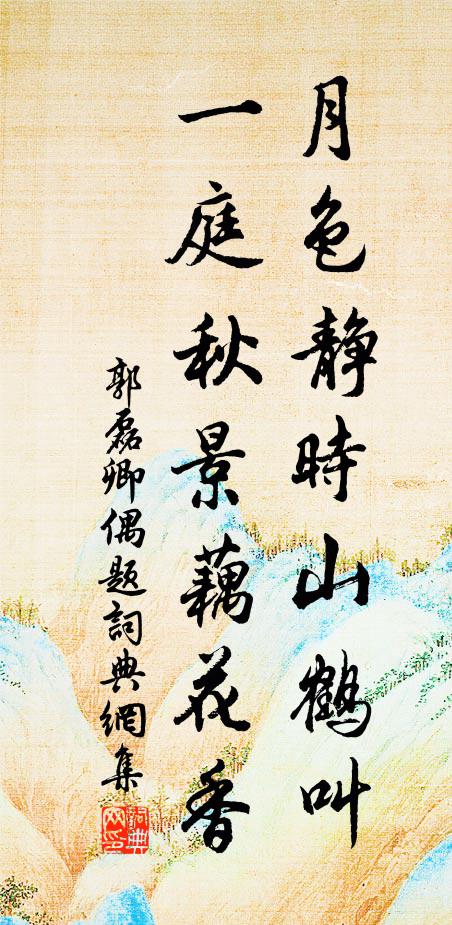 月色静時山鹤叫
一庭秋景藕花香
郭磊卿偶題詞典網集
詞典網印